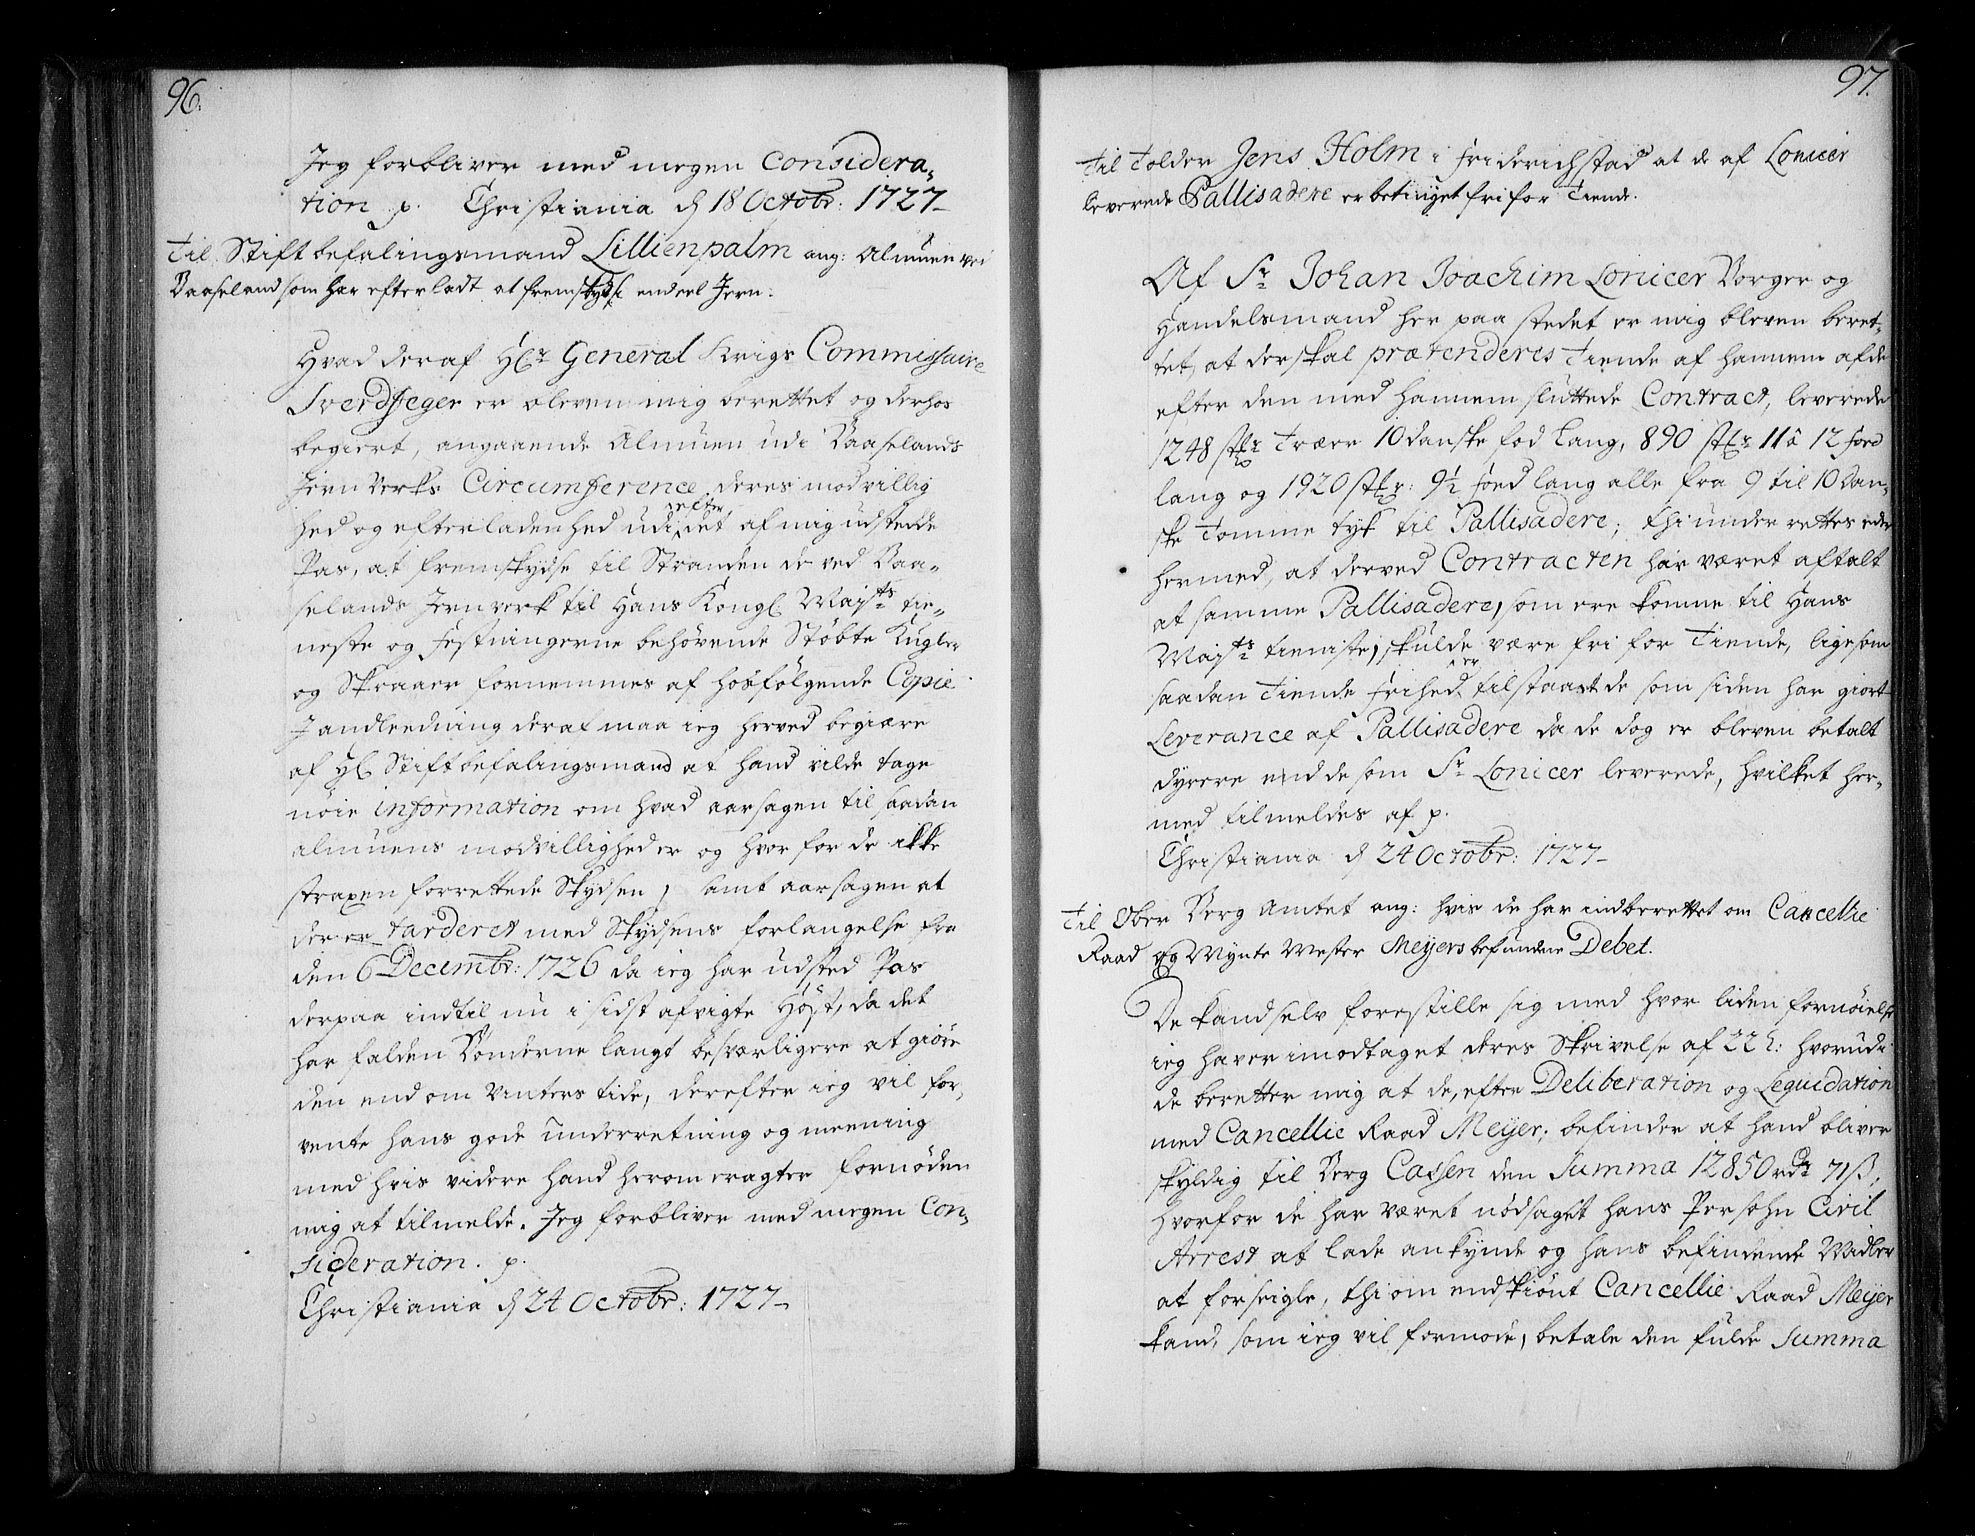 96.
Jeg forbliver med megen Considera,
tion p. Christiania d 18 Octobr: 1727
Til Stiftbefalingsmand Lillienpalm ang: Almuen ved
Baaseland som har efterladt at fremskydse endeel Jern.
Hvad deraf Hr General Krigs Commissaire
Sverdfeger er bleven mig berettet og derhos
begiert, angaaende Almuen udi Baaselands
Jern Verks Circumference deres modvillig
hed og efterladenhed udi efter det af mig udstedde
Pas, at fremskydse til Stranden de ved Baa,
selands Jernverk til Hans Kongl. Mayts tie,
neste og Festningerne behövende Stöbte Kugler
og Skraaer fornemmes af hosfölgende Copie
J andleedning deraf maa ieg herved begiære
af H Stiftbefalingsmand at hand vilde tage
nöie information om hvad aarsagen til saadan
almuens modvillighed er og hvorfor de ikke
straxen forrettede Skydsen, samt aarsagen at
der er tarderet med Skydsens forlangelse fra
den 6 Decembr: 1726 da ieg har udsted Pas
derpaa indtil nu i sidst afvigte Höst, da det
har falden Bönderne langt besværligere at giöre
den end om Vinters tide, derefter ieg vil for,
vente hans gode underretning og meening
med hvis videre hand herom eragter fornöden
mig at tilmelde. Jeg forbliver med megen Con,
sideration. p.
Christiania d 24 Octobr: 1727
97.
Til Tolder Jens Holm i Friderichstad at de af Lonicer
leverede Pallisadere er betinget fri for Tiende.
Af Sr Johan Joachim Lonicer Borger og
Handelsmand her paa stedet er mig bleven beret,
tet, at der skal prætenderes Tiende af hannem af de
efter den med hannem sluttede Contract, leverede
1248 stkr Træer 10 danske fod lang, 890 stkr 11 â 12 foed
lang og 1920 stkr: 9½ foed lang alle fra 9 til 10 Dan,
ske Tomme tyk til Pallisadere; thi underrettes eder
hermed, at derved Contracten har været aftalt
at samme Pallisadere, som ere komne til Hans
Mayts tieniste, skulde være fri for Tiende, ligesom
saadan Tiende frihed er tilstaaet de som siden har giort
Leverance af Pallisadere da de dog er bleven betalt
dyrere end de som Sr Lonicer leverede, hvilket her,
med tilmeldes af p.
Christiania d 24 Octobr: 1727
Til Ober Berg Amtet ang: hvis de har indberettet om Cancellie
Raad og Mynte Mester Meÿers befundne Debet.
De kand selv forestille sig med hvor liden fornöielse
ieg haver imodtaget deres Skrivelse af 22 h: hvorudi
de beretter mig at de, efter Deliberation og Leqvidation
med Cancellie Raad Meÿer, befinder at hand bliver
skyldig til Berg Cassen den Summa 12850 rdr 71 ß,
hvorfor de har været nödsaget hans Persohn Civil
Arrest at lade ankynde og hans befindende Midler
at forseigle, thi om endskiönt Cancellie Raad Meÿer
kand, som ieg vil formode, betale den fulde Summa